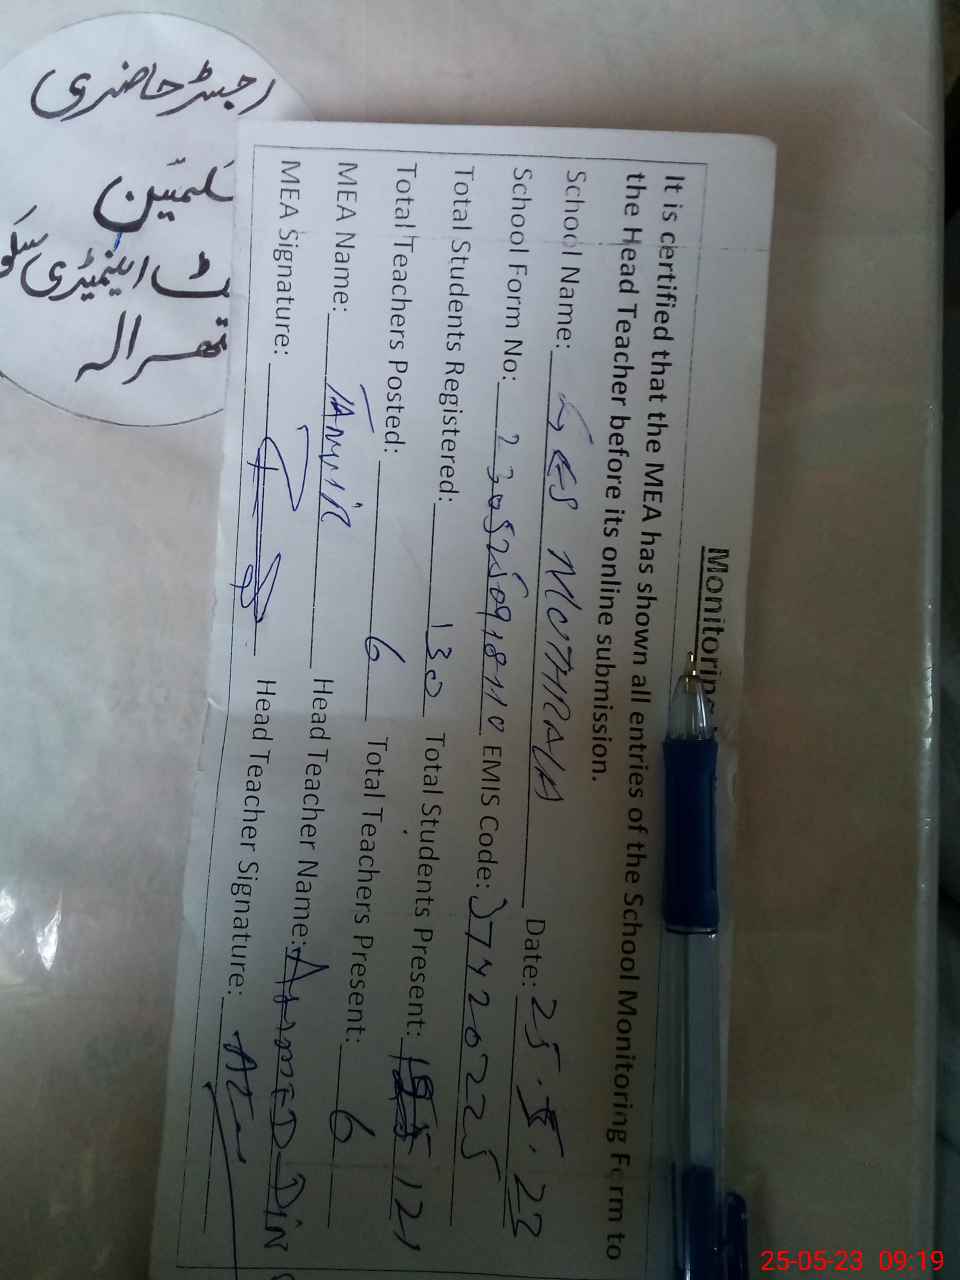 رجسٹر حاضری
Monitoring
It is certified that the MEA has shown all entries of the School Monitoring Form to
the Head Teacher before its online submission.
School Name: GES MOTHRALA Date: 25.5.23
School Form No: 2305250918110 EMIS Code: 37420225
Total Students Registered: 130 Total Students Present: 121
Total Teachers Posted: 6 Total Teachers Present: 6
MEA Name: Head Teacher Name: AHMED DIN
MEA Signature: Head Teacher Signature:
25-05-23 09:19